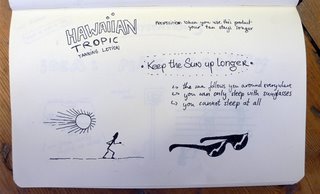 HAWAIIAN
TROPIC
TANNING LOTION
PROPOSITION: When you use this product
your tan stays longer
• Keep the Sun up longer •
↳ the sun follows you around everywhere
↳ you can only sleep with sunglasses
↳ you cannot sleep at all